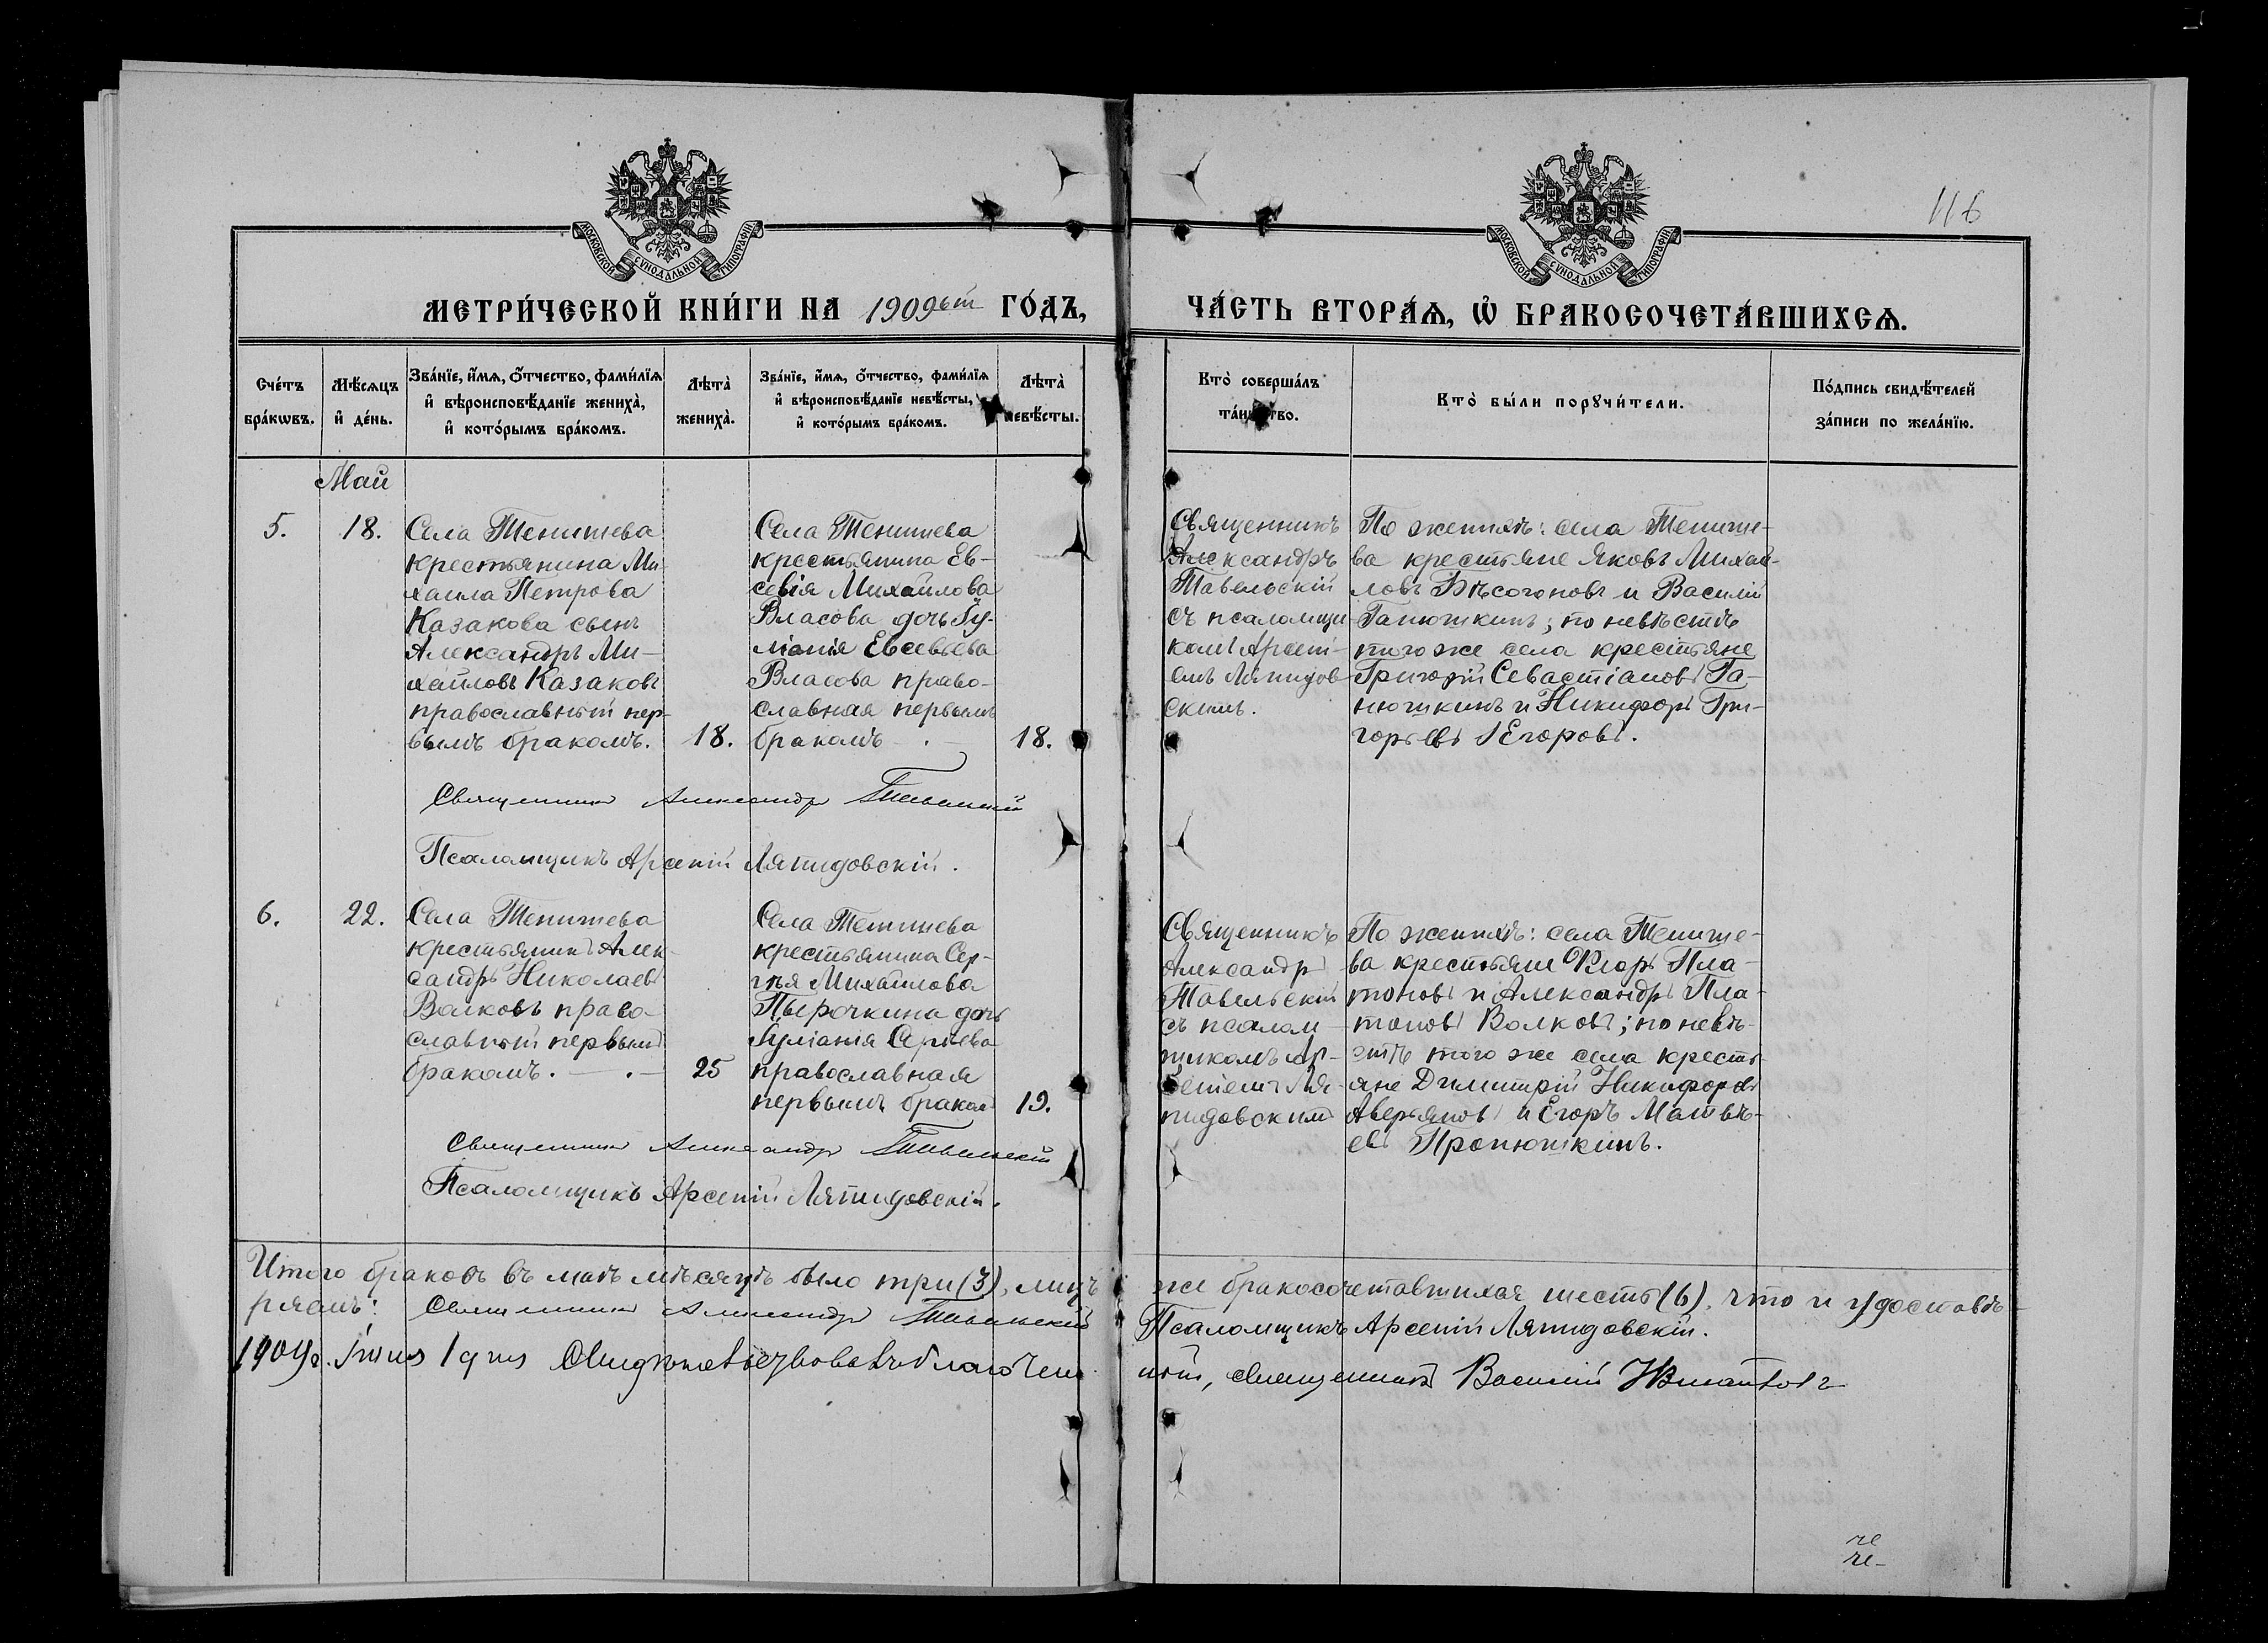 116
МОСКОВСКОЙ СѴНОДАЛЬНОЙ ТИПОГРАФІИ
МОСКОВСКОЙ СѴНОДАЛЬНОЙ ТИПОГРАФІИ
МЕТРИ́ЧЕСКОЙ КНИ́ГИ НА 1909ый ГО́ДЪ,
ЧА́СТЬ ВТОРА́Ѧ, Ѡ҆ БРАКОСОЧЕТА́ВШИХСѦ.
Сче́тъ бра́кѡвъ.
Мѣ́сяцъ и҆ де́нь.
Зва́нїе, и҆́мѧ, ѻ҆́тчество, фами́лїѧ
и҆ вѣроисповѣ́данїе жениха̀,
и҆ кото́рымъ бра́комъ.
Лѣта̀ жениха̀.
Зва́нїе, и҆́мѧ, ѻ҆́тчество, фами́лїѧ
и҆ вѣроисповѣ́данїе невѣ́сты,
и҆ кото́рымъ бра́комъ.
Лѣта̀ невѣ́сты.
Кто̀ соверша́лъ
та́инство.
Кто̀ бы́ли порꙋчи́тели.
По́дпись свидѣ́телей
за́писи по жела́нїю.
Май
5.
18.
Села Тенишева
крестьянина Ми-
хаила Петрова
Казакова сынъ
Александръ Ми-
хайловъ Казаковъ
православный пер-
вымъ бракомъ.
18.
Села Тенишева
крестьянина Ев-
севія Михайлова
Власова дочь Іу-
ліанія Евсевьева
Власова право-
славная первымъ
бракомъ
18.
Священникъ
Александръ
Тавельскій
съ псаломщи-
комъ Арсені-
емъ Ляпидов-
скимъ.
По женихѣ: села Тенише-
ва крестьяне Яковъ Михай-
ловъ Бѣсогоновъ и Василій
Ганюшкинъ; по невѣстѣ
того же села крестьяне
Григорій Севастіановъ Га-
нюшкинъ и Никифоръ Гри-
горьевъ Егоровъ.
Священникъ Александръ Тавельскій
Псаломщикъ Арсеній Ляпидовскій.
6.
22.
Села Тенишева
крестьянинъ Алек-
сандръ Николаевъ
Волковъ право-
славный первымъ
бракомъ.
25
Села Тенишева
крестьянина Сер-
гѣя Михайлова
Пырочкина дочь
Іуліанія Сергѣева
православная
первымъ бракомъ
19.
Священникъ
Александръ
Тавельскій
съ псалом-
щикомъ Ар-
сеніемъ Ля-
пидовскимъ
По женихѣ: села Тенише-
ва крестьяне Флоръ Пла-
тоновъ и Александръ Пла-
тоновъ Волковъ; по невѣ-
стѣ того же села кресть-
яне Димитрій Никифоровъ
Аверьяновъ и Егоръ Матвѣ-
евъ Пронюшкинъ.
Священникъ Александръ Тавельскій
Псаломщикъ Арсеній Ляпидовскій.
Итого браковъ въ маѣ мѣсяцѣ было три (3), лицъ же бракосочетавшихся шесть (6), что и удостовѣ-
ряемъ: Священникъ Александръ Тавельскій Псаломщикъ Арсеній Ляпидовскій.
1909 г. Іюня 1 дня Свидѣтельствовалъ благочин ный, священникъ Василій